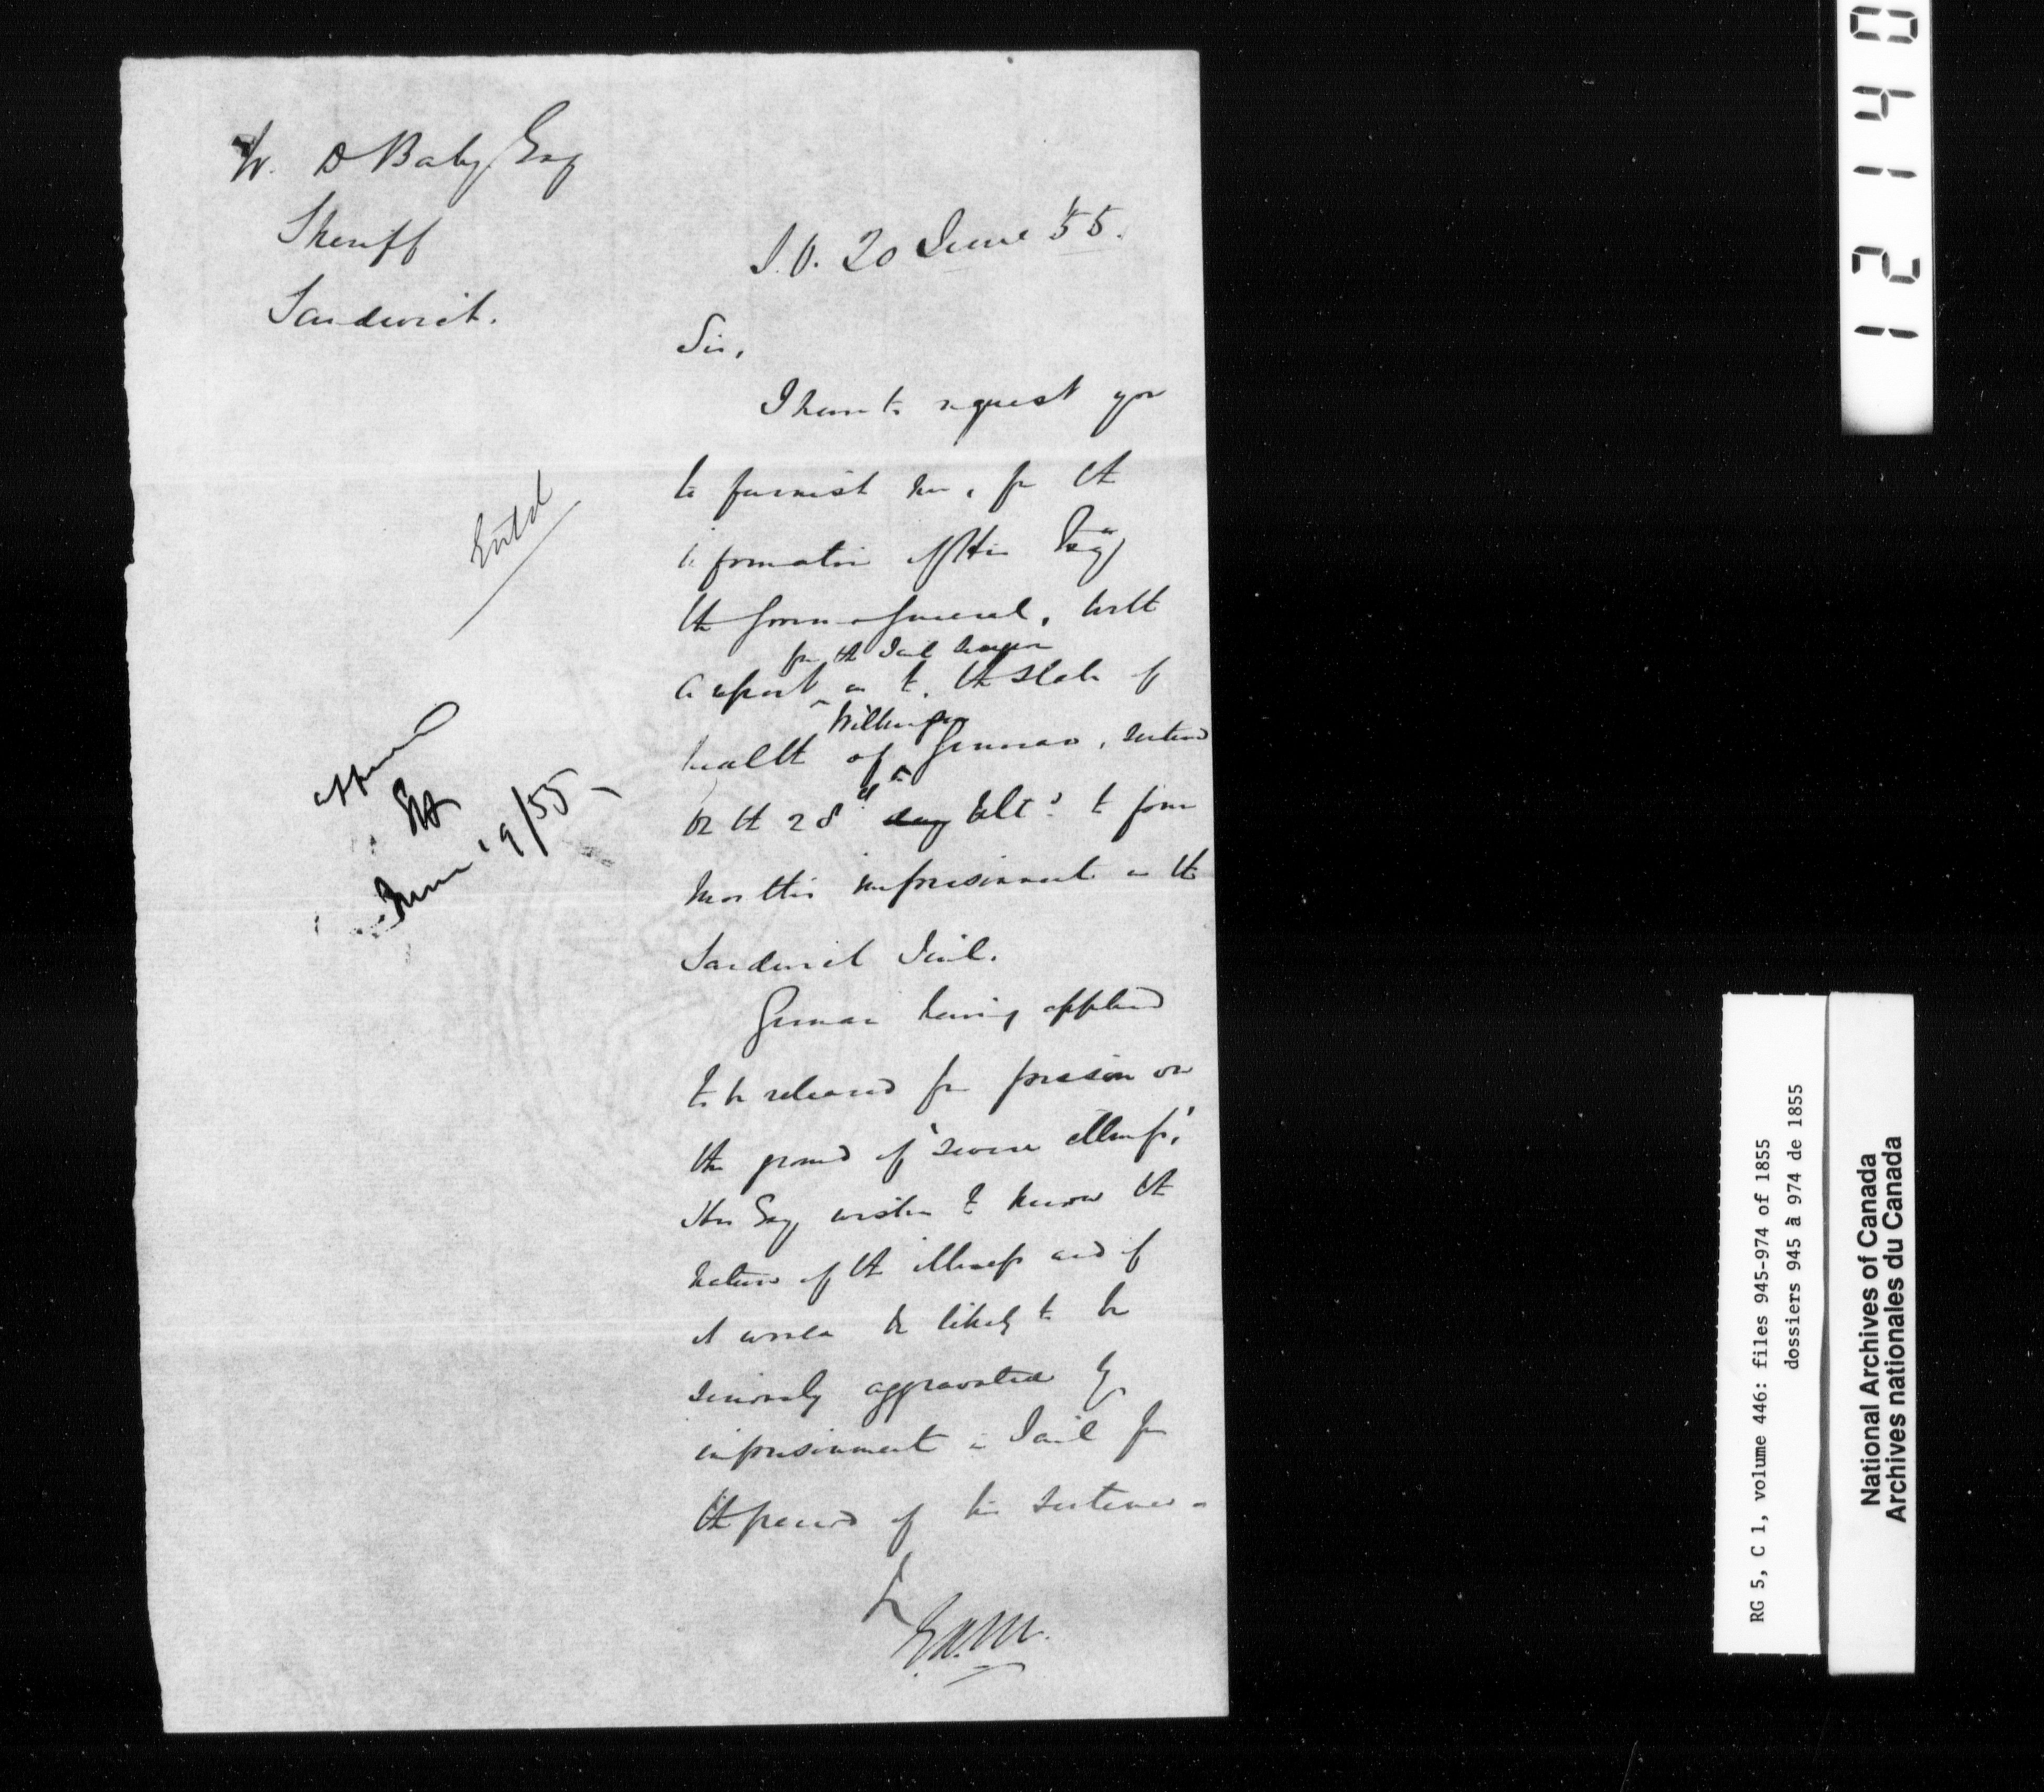 W. D Baby Esq
Sheriff
Sandwich.
S.O. 20 June '55.
Sir,
I have to request you
to furnish me, for the
information of His Exy
the Governor General, with
a report ^ as to the state of
for the Jail Surgeon
health of ^ German, sentenced
Wilkinson
on the 28th day Ulto to four
months imprisonment in the
Sandwich Jail.
German having applied
to be released from prison on
the ground of "severe illness",
His Exy wishes to know the
nature of the illness and if
it would be likely to be
seriously aggravated by
imprisonment in Jail for
the period of his sentence.
E.A.M.
Entd
approved
June 19/55
12140
RG 5, C 1, volume 446: files 945-974 of 1855
dossiers 945 à 974 de 1855
National Archives of Canada
Archives nationales du Canada